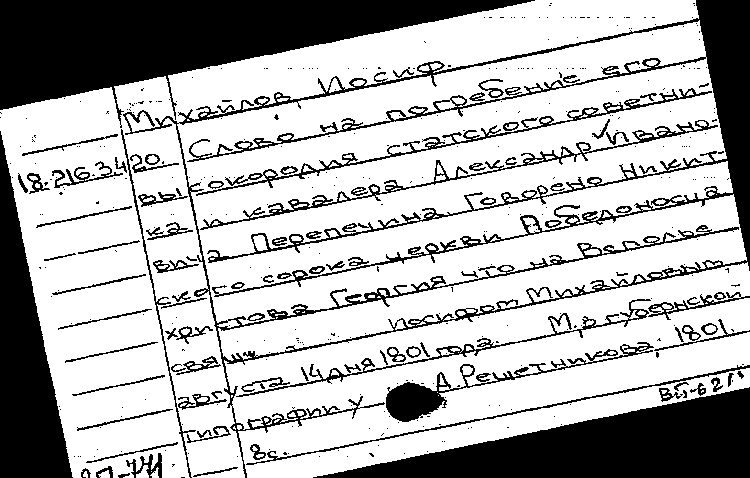 Михайлов, Иосиф.
18.216.3.420. Слово на погребение его
высокородия статского советни-
ка и кавалера Александр Ивано-
вича Перепечина Говорено Никит-
ского сорока, церкви Победоносца
христова Георгия, что на Всполье
свящ. Иосифом Михайловым,
августа 14 дня 1801 года. М., в губернской
типографии у А. Решетникова, 1801.
8с.